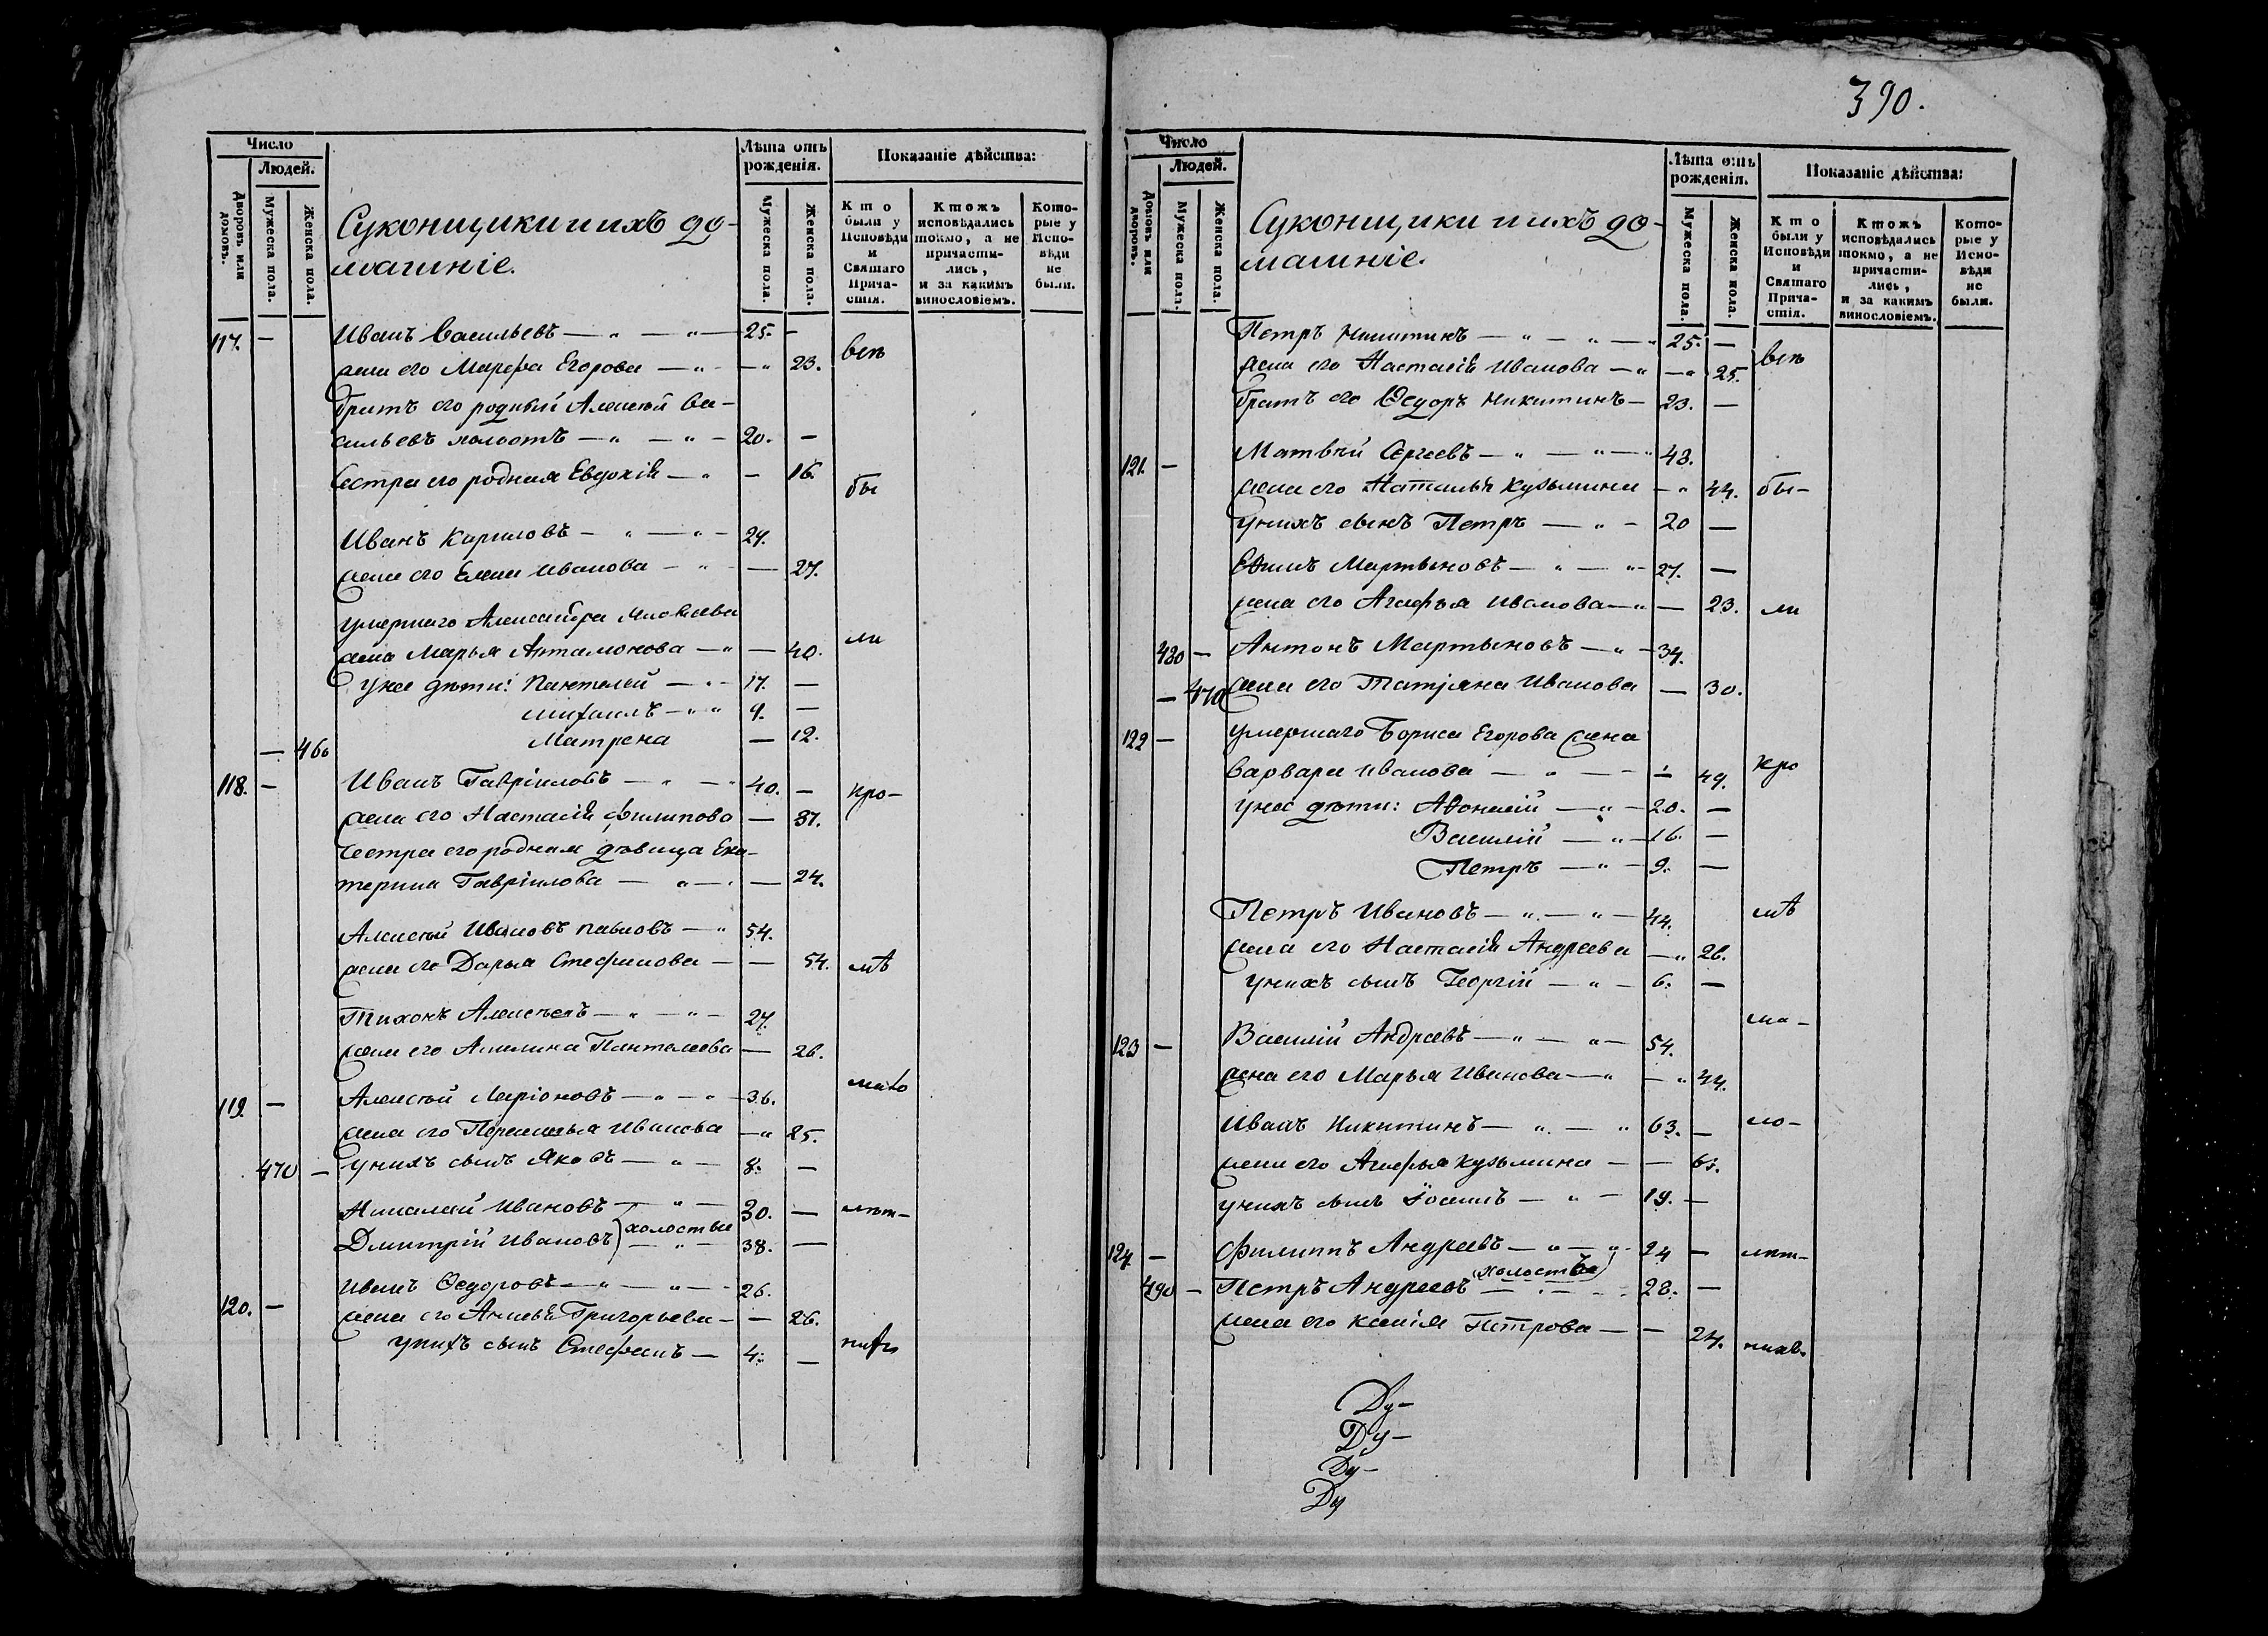 390.
Число
Людей.
Дворовъ или домовъ.
Мужеска пола.
Женска пола.
Суконщики и ихъ до-
машніе.
Лѣта отъ рожденія.
Мужеска пола.
Женска пола.
Показаніе дѣйства:
Кто были у Исповѣди и Святаго Прича-стія.
Ктожъ исповѣдались токмо, а не причасти-лись, и за какимъ винословіемъ.
Кото-рые у Испо-вѣди не были.
117. — Иванъ Васильевъ — " — " — 25. —
жена его Марфа Егорова — " — — " 23. всѣ
братъ его родный Алексѣй Ва-
сильевъ холостъ — " — " — 20. —
Сестра его родная Евдокія — " — 16. бы
Иванъ Кириловъ — " — " — 29.
жена его Елена Иванова — " — — 27.
умершаго Александра
жена Марья Артамонова — " — 40. ли
у нея дѣти: Пантелей — " — 17. —
Михаилъ — " " 9. —
— 460 Матрена — 12.
118. — Иванъ Гавріиловъ — " — " 40. — кро-
жена его Настасія Филипова — 37.
Сестра его родная дѣвица Ека-
терина Гавріилова — " — — 24.
Алексѣй Ивановъ Павловъ — " 54.
жена его Дарья Стефанова — — 54. мѣ
Тихонъ Алексѣевъ — " — " — 27.
жена его Акилина Пантелеева — 26.
119. — Алексѣй Ларіоновъ — " — " — 36. мало
жена его Иванова — " 25.
470 — у нихъ сынъ Яковъ — " — 8. —
Николай Ивановъ — " — 30. — лѣт-
Дмитрій Ивановъ ) холостые — " — 38. —
120. — Иванъ Ѳедоровъ — " — " — 26.
жена его Анисья Григорьева — — 26.
у нихъ сынъ Стефанъ — 4. — нихъ
Число
Людей.
Домовъ или дворовъ.
Мужеска пола.
Женска пола.
Суконщики и ихъ до-
машніе.
Лѣта отъ рожденія.
Мужеска пола.
Женска пола.
Показаніе дѣйства:
Кто были у Исповѣди и Святаго Прича-стія.
Ктожъ исповѣдались токмо, а не причасти-лись, и за какимъ винословіемъ.
Кото-рые у Испо-вѣди не были.
Петръ Никитинъ — " — " — " 25. —
жена его Настасія Иванова — " — " 25. всѣ
братъ его Ѳедоръ Никитинъ — 23. —
121. — Матвѣй Сергѣевъ — " — " — " 43.
жена его Наталья Кузьмина — " 44. бы-
у нихъ сынъ Петръ — " — 20 —
Евимъ Мартыновъ — " — " — 27. —
жена его Агафья Иванова — " — 23. ли
480 — Антонъ Мартыновъ — " — 34.
— 470 жена его Татіяна Иванова — 30.
122 — умершаго Бориса Егорова жена
Варвара Иванова — " — — 49. кро
у нея дѣти: Аѳонасій — " — 20. —
Василій — " — 16. —
Петръ — " — 9. —
Петръ Ивановъ — " — " — 44. мѣ
жена его Настасія Андреева — " 26.
у нихъ сынъ Георгій — " — 6. —
123 — Василій Андреевъ — " — " — 54. ма-
жена его Марья Иванова — " — " 44.
Иванъ Никитинъ — " — " 63. — ло-
жена его Агафья Кузьмина — — 61.
у нихъ сынъ Іосифъ — " — 19. —
124. — Филиппъ Андреевъ — " — " 24 — лѣт-
(холостъ)
490 — Петръ Андреевъ — " — 28. —
жена его Ксенія Петрова — — 24. нихъ.
Ду-
Ду-
Ду-
Ду